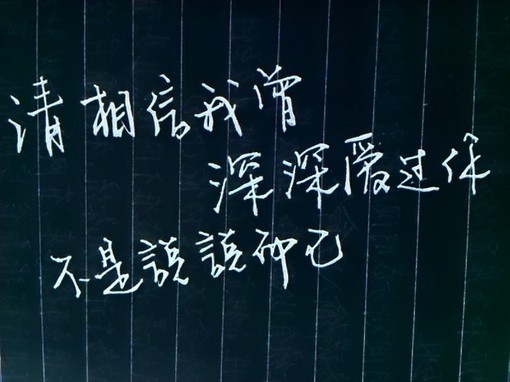 请相信我曾
深深爱过你
不是說說而已